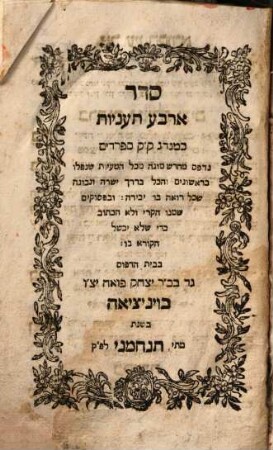 סדר
ארבע תעניות
כמנהג ק״ק ספרדים
נדפס מחדש מוגה מכל הטעיות שנפלו
בראשונים והכל בדרך ישרה ונכונה
שכל רואה בו יבירה: ובפסוקים
שמנו הקרי ולא הכתוב
כדי שלא יכשל
הקורא בו:
בבית הדפוס
גד בכ״ר יצחק פואה יצ״ו
בויניציאה
בשנת
מתי, תנחמני לפ״ק